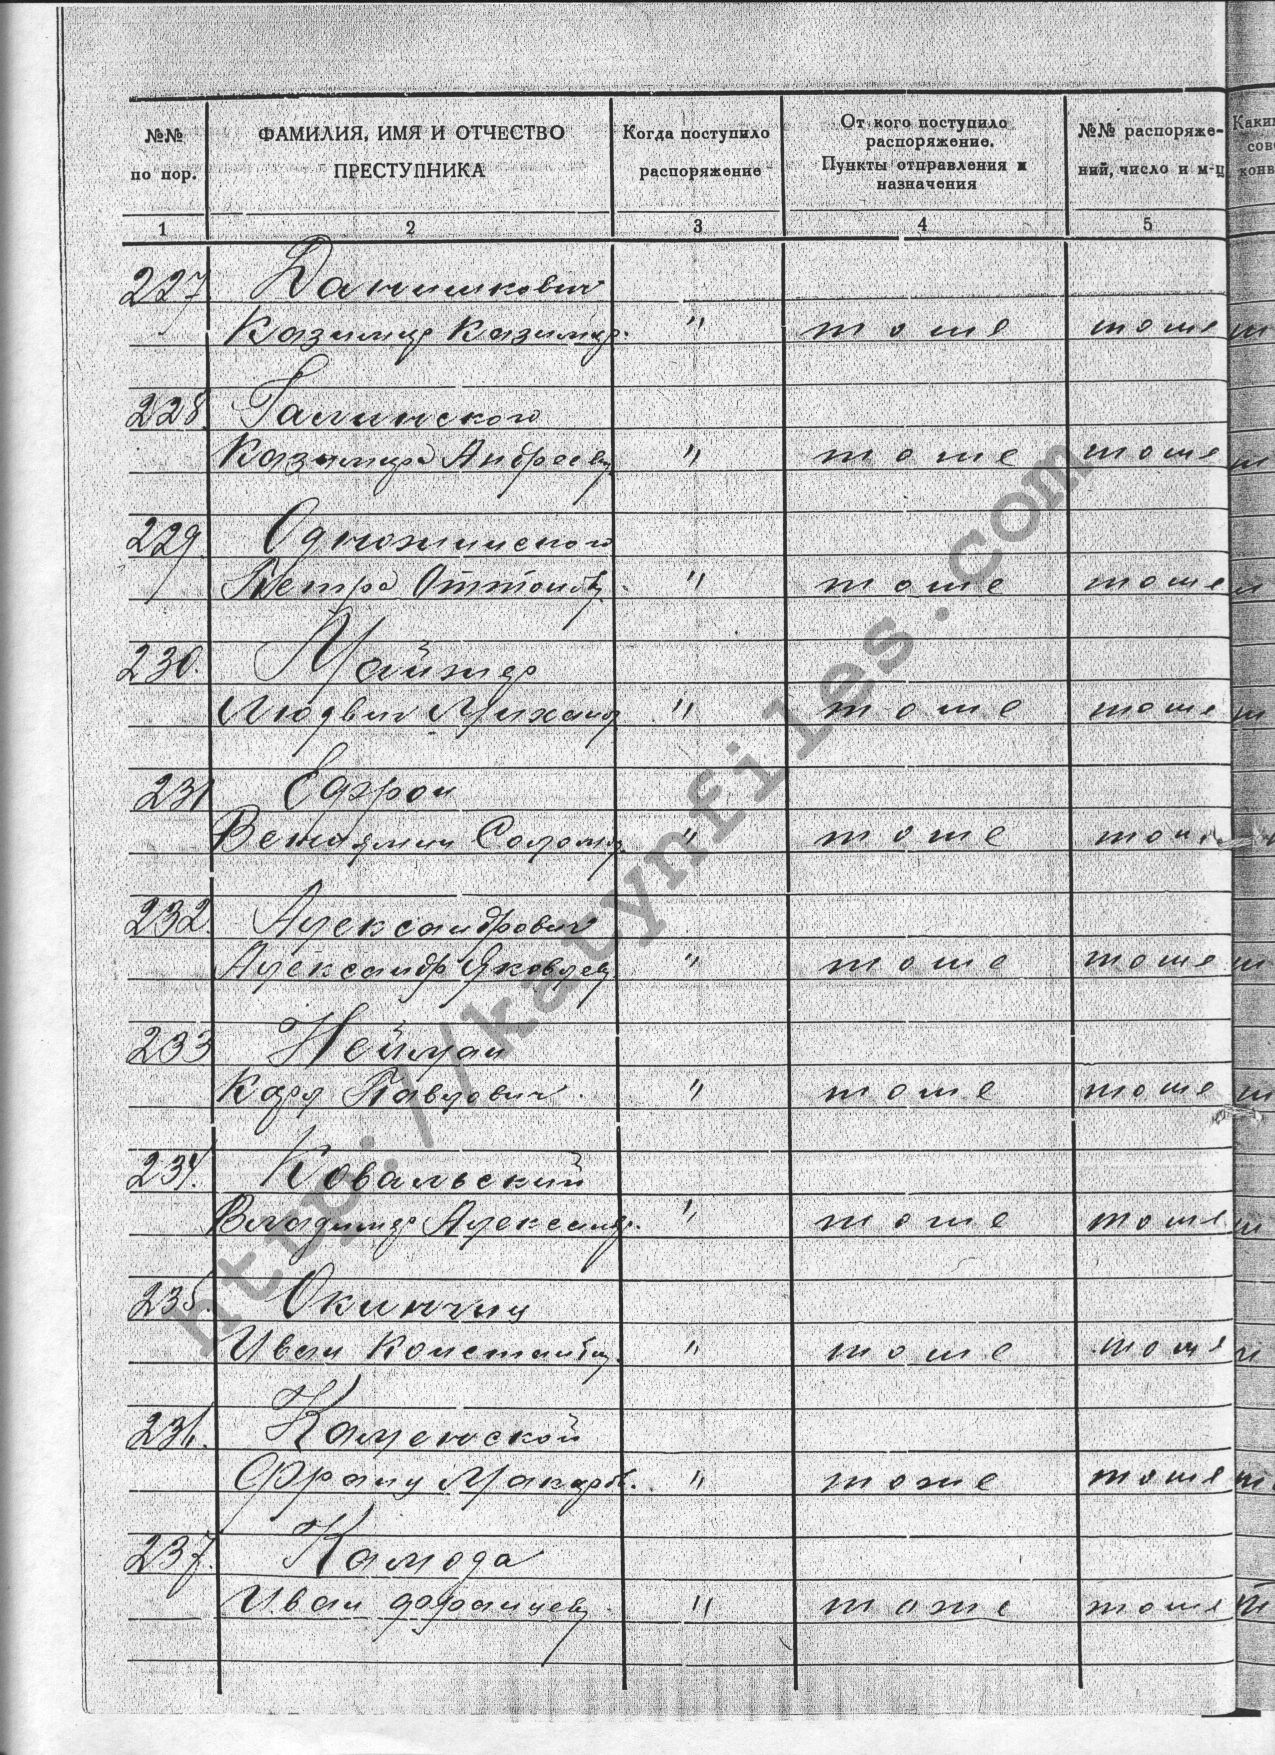 №№ по пор.
ФАМИЛИЯ, ИМЯ И ОТЧЕСТВО ПРЕСТУПНИКА
Когда поступило распоряжение
От кого поступило распоряжение. Пункты отправления и назначения
№№ распоряже-ний, число и м-ц
Каким
сов
конв
1 2 3 4 5
227 Данишкович
Казимир Казимир. " тоже тоже
228. Галинского
Казимира Андреев " тоже тоже
229. Одножинского
Петра Оттонов. " тоже тоже
230. Майзнер
Людвиг Михаил " тоже тоже
231 Едфрон
Вениамин Соломон " тоже
232. Александрович
Александр Яковлев " тоже тоже
233 Нейман
Карл Павлович. " тоже тоже
234. Ковальский
Владимир Александр. " тоже тоже
235 Окинчиц
Иван Константин. " тоже тоже
236. Каменской
Франц Макаров. " тоже тоже
237. Камода
Иван Францев. " тоже тоже
http://katynfiles.com